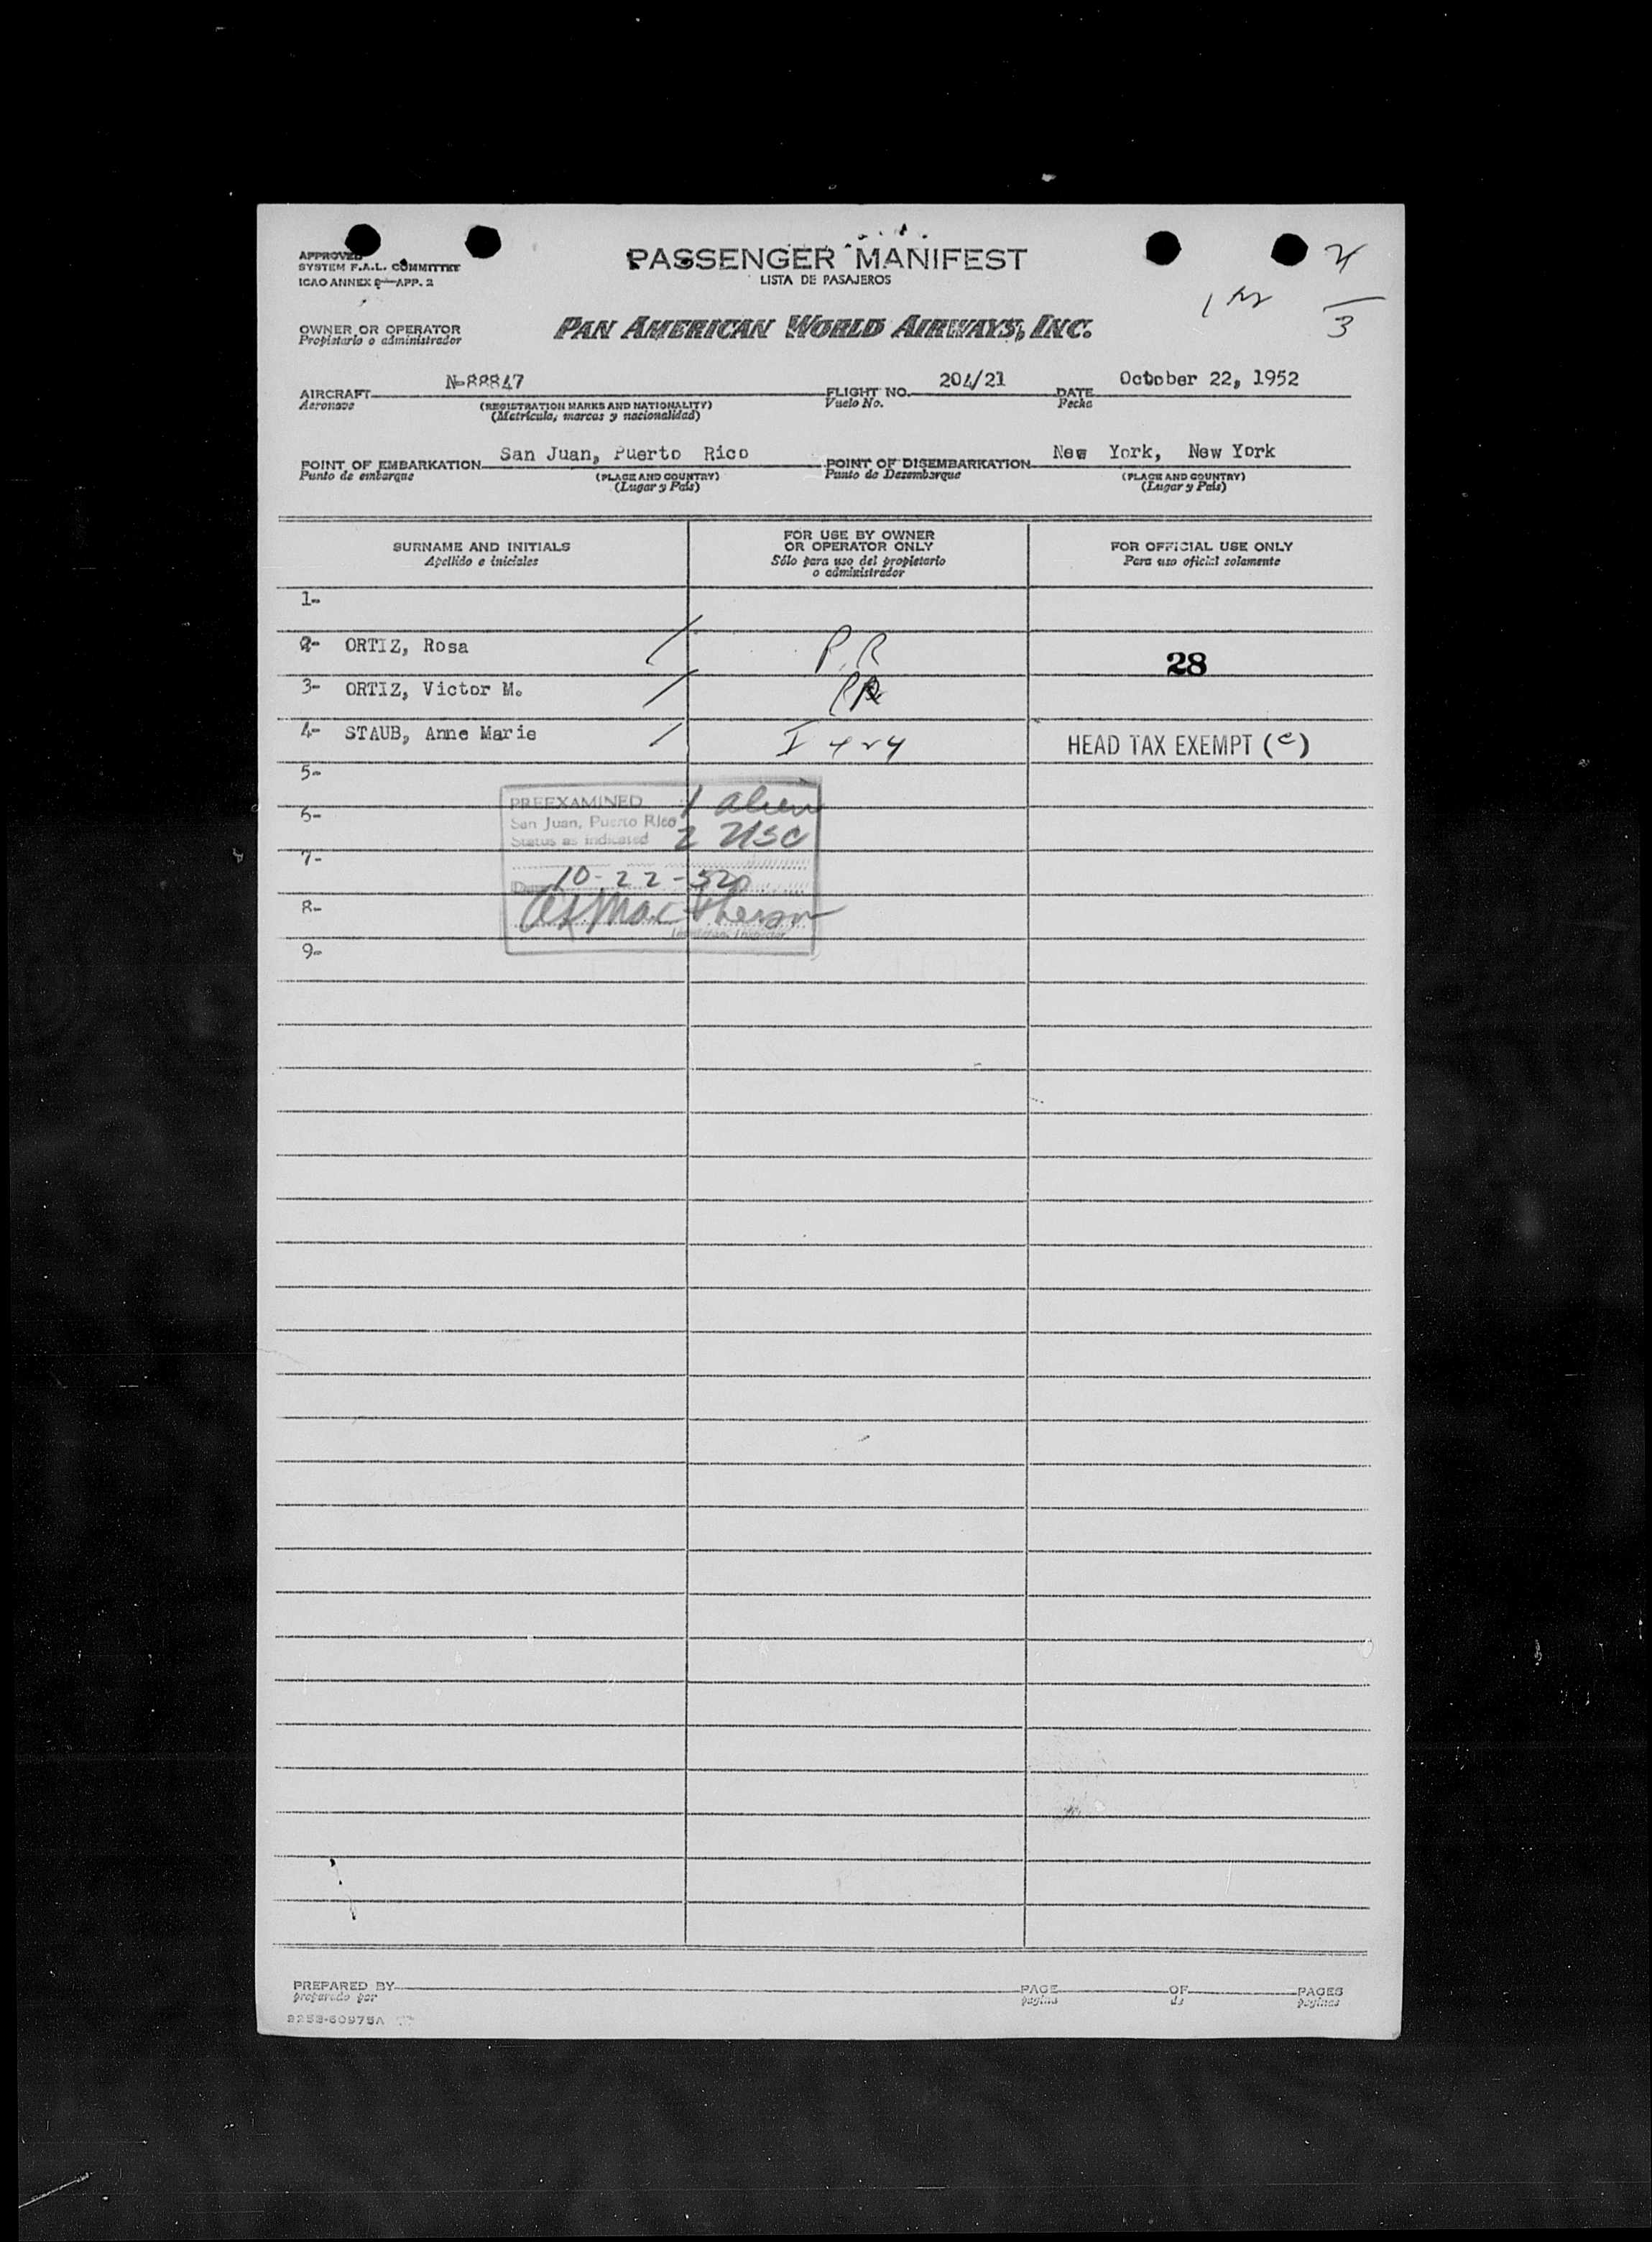 APPROVED
SYSTEM F.A.L. COMMITTEE
ICAO ANNEX 9—APP. 2
PASSENGER MANIFEST
LISTA DE PASAJEROS
3
OWNER OR OPERATOR
Propietario o administrador
PAN AMERICAN WORLD AIRWAYS, INC.
AIRCRAFT N-88847 FLIGHT NO. 204/21 DATE October 22, 1952
Aeronave (REGISTRATION MARKS AND NATIONALITY) Vuelo No. Fecha
(Matrícula, marcas y nacionalidad)
POINT OF EMBARKATION San Juan, Puerto Rico POINT OF DISEMBARKATION New York, New York
Punto de embarque (PLACE AND COUNTRY) Punto de Desembarque (PLACE AND COUNTRY)
(Lugar y País) (Lugar y País)
SURNAME AND INITIALS FOR USE BY OWNER OR OPERATOR ONLY FOR OFFICIAL USE ONLY
Apellido e iniciales Sólo para uso del propietario o administrador Para uso oficial solamente
1-
2- ORTIZ, Rosa / P.R 28
3- ORTIZ, Victor M. / PR
4- STAUB, Anne Marie / I 424 HEAD TAX EXEMPT (c)
5-
PREEXAMINED 1 alien
6-
San Juan, Puerto Rico 2 USC
Status as indicated
7-
Date 10-22-52
8-
Immigrant Inspector
9-
PREPARED BY PAGE OF PAGES
preparado por pagina de paginas